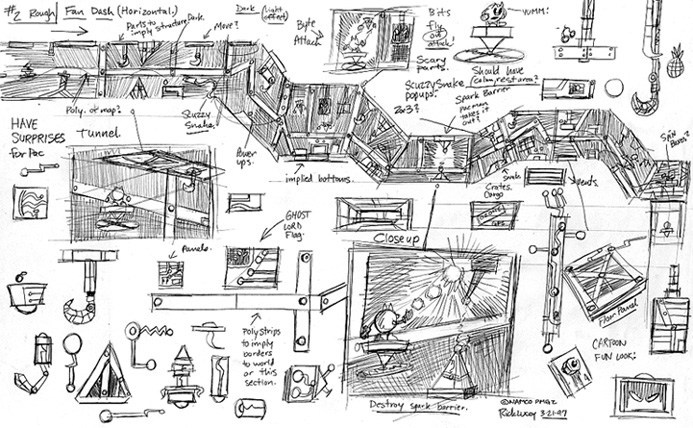 #2 Rough Fan Dash (Horizontal.)
Parts to
imply structure
Dark.
Move?
Dark (light
offset)
Byte
Attach
Bits
fly
out
attack!
Scary
parts
YUMM!
Should have
calm, rest area?
Scuzzy Snake
popups.
2 or 3?
Spark Barrier
pacman
takes
out?
Spin
Poly. or map?
Scuzzy
Snake.
HAVE
SURPRISES
for Pac
Tunnel.
Power
ups.
implied bottoms.
Crates.
Cargo
Vents.
GHOST
LORD
Flag.
Panels.
Close up
Floor Panel
Poly strips
to imply
borders
to world
or this
section.
CARTOON
FUN LOOK!
Destroy spark barrier.
©NAMCO PMGZ
3-21-97